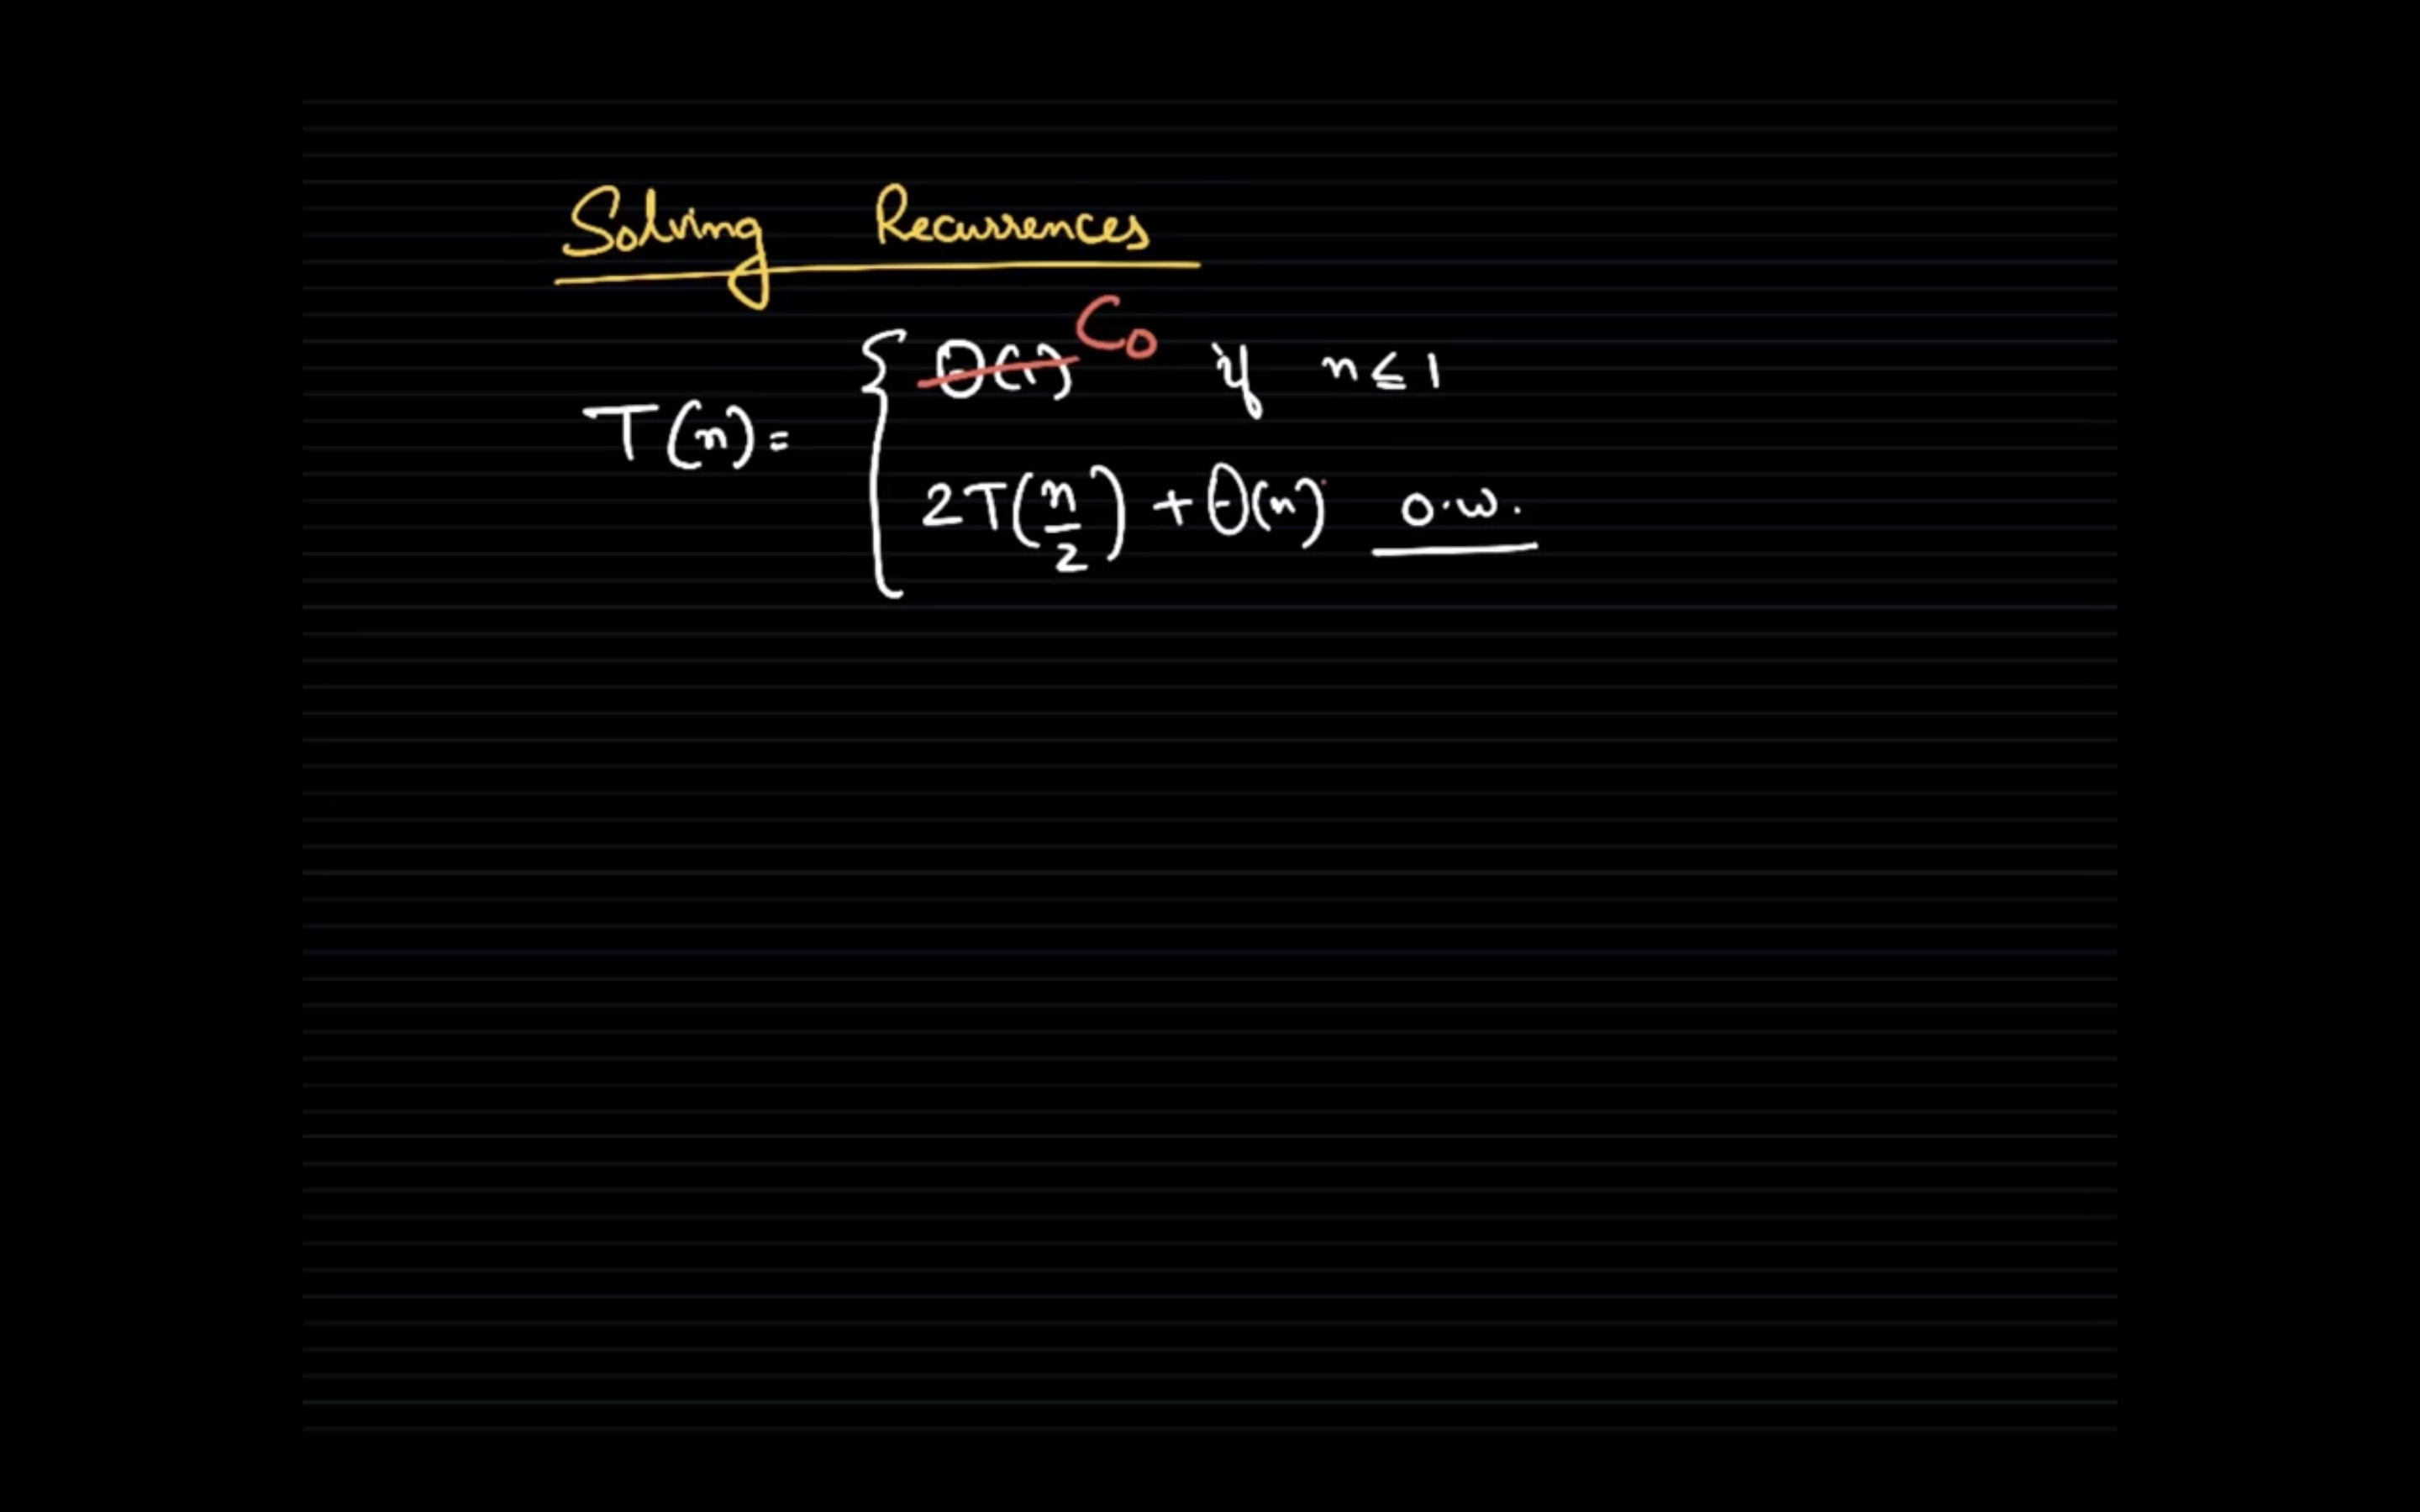 Solving Recurrences
T(n) = { Θ(1) C₀ if n ≤ 1
2T(n/2) + Θ(n) o.w.